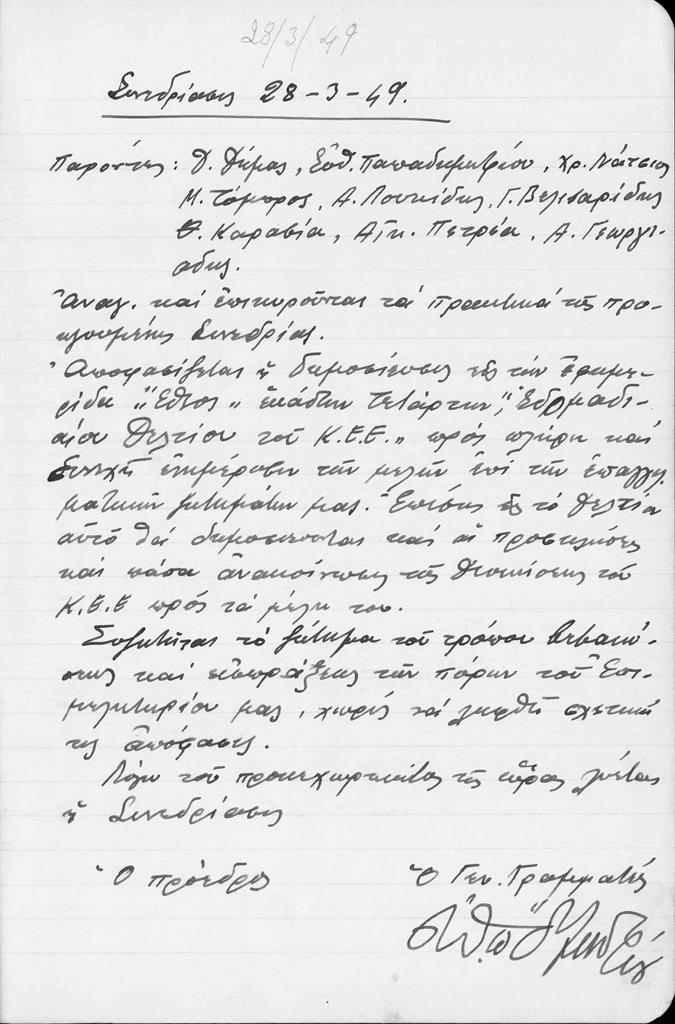 28/3/49
Συνεδρίασις 28-3-49.
Παρόντες: Δ. Δήμας, Εὐθ. Παπαδημητρίου, Χρ. Νάτσιος
Μ. Τόμπρος, Α. Λουκίδης, Γ. Βελισαρίδης
Θ. Καραβία, Αἰκ. Πετρέα, Α. Γεωργι-
άδης.
Ἀναγ. καί ἐπικυροῦνται τά πρακτικά τῆς προ-
ηγουμένης Συνεδρίας.
Ἀποφασίζεται ἡ δημοσίευσις εἰς τήν ἐφημε-
ρίδα "Ἔθνος" ἑκάστην Τετάρτην, "Ἑβδομαδι-
αίου Δελτίου τοῦ Κ.Ε.Ε." πρός πλήρη καί
συνεχῆ ἐνημέρωσιν τῶν μελῶν ἐπί τῶν ἐπαγγελ
ματικῶν ζητημάτων μας. Ἐπίσης εἰς τό Δελτίο
αὐτό θά δημοσιεύονται καί αἱ προσκλήσεις
καί πᾶσα ἀνακοίνωσις τῆς Διοικήσεως τοῦ
Κ.Ε.Ε πρός τά μέλη του.
Συζητεῖται τό ζήτημα τοῦ τρόπου βεβαιώ-
σεως καί εἰσπράξεως τῶν πόρων τοῦ Ἐπι-
μελητηρίου μας, χωρίς νά ληφθῆ σχετική
τις ἀπόφασις.
Λόγω τοῦ προκεχωρηκότος τῆς ὥρας λύεται
ἡ Συνεδρίασις
Ὁ πρόεδρος
Ὁ Γεν. Γραμματεύς